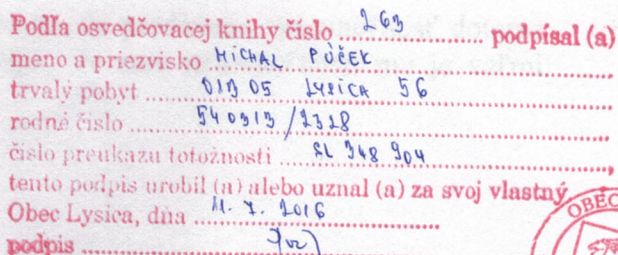 Podľa osvedčovacej knihy číslo 263 podpísal (a)
meno a priezvisko MICHAL PÚČEK
trvalý pobyt 013 05 LYSICA 56
rodné číslo 540313/2328
číslo preukazu totožnosti SL 348 904
tento podpis urobil (a) alebo uznal (a) za svoj vlastný.
Obec Lysica, dňa 11. 7. 2016
podpis
OBEC